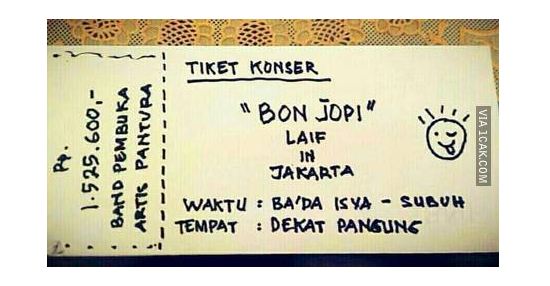 Rp.
1.525.600,-
BAND PEMBUKA
ARTIS PANTURA
TIKET KONSER
"BON JOPI"
LAIF
IN
JAKARTA
WAKTU : BA'DA ISYA - SUBUH
TEMPAT : DEKAT PANGUNG
VIA 1CAK.COM